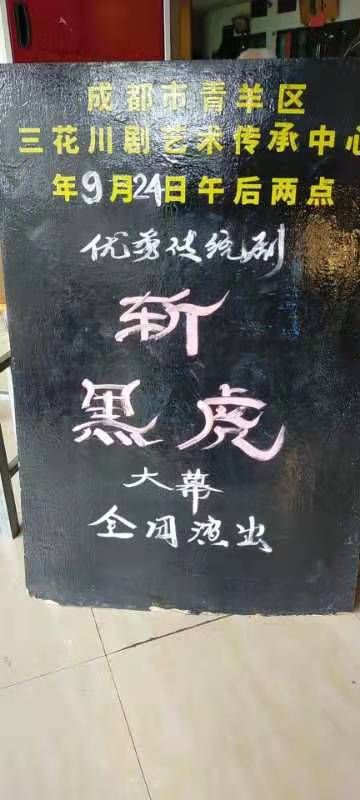 成都市青羊区
三花川剧艺术传承中心
年9月24日午后两点
优秀传统剧
斩
黑虎
大幕
全团演出